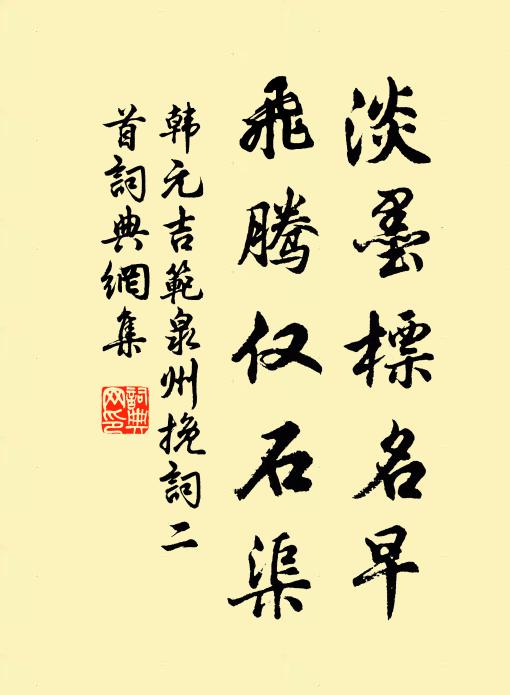 淡墨標名早
飛騰仅石渠
韩元吉範泉州挽詞二
首詞典網集
詞典
网印